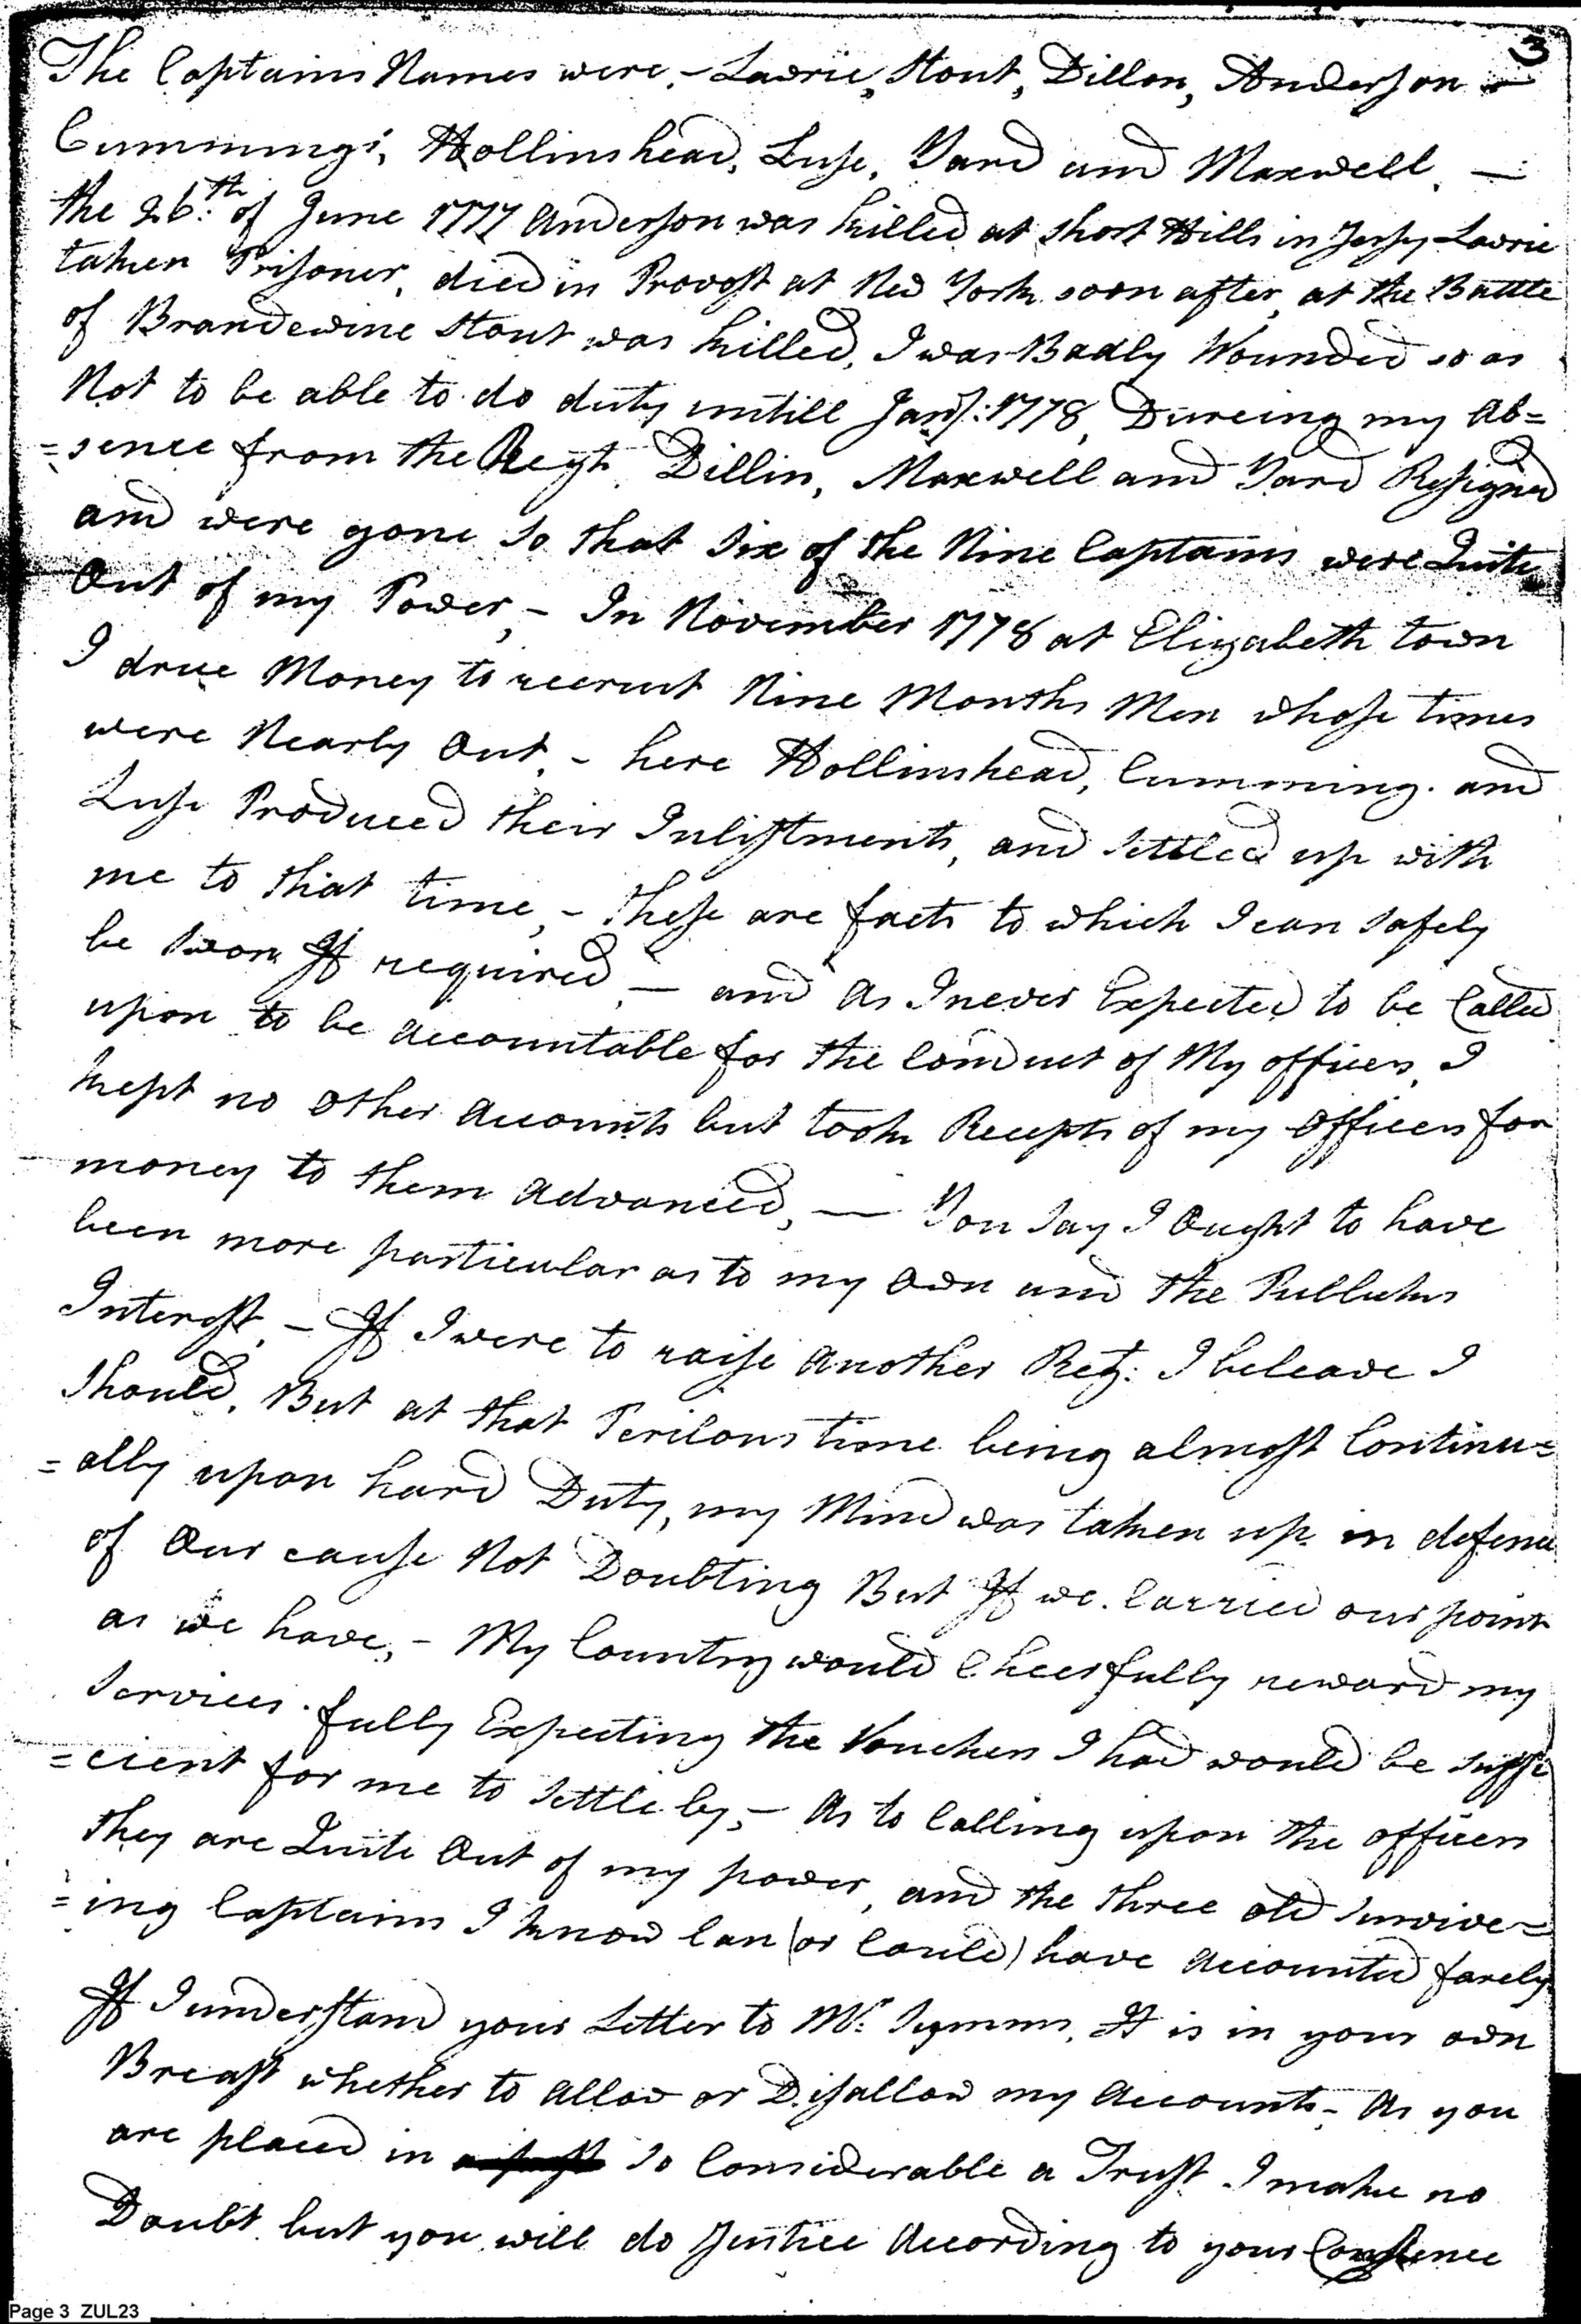 3
The Captains Names were, - Lawrie, Stout, Dillon, Anderson -
Cummings, Hollinshead, Luse, Yard and Maxwell. -
the 26.th of June 1777 Anderson was killed at Short Hills in Jersy Lawrie
taken Prisoner, died in Provost at New York soon after, at the Battle
of Brandewine Stout was killed, I was Badly Wounded so as
Not to be able to do duty untill Jany: 1778, Dureing my Ab=
=sence from the Regt. Dillin, Maxwell and Yard Resigned
and were gone so that six of the Nine Captains were Quite
Out of my Power, - In November 1778 at Elizabeth town
I drue Money to recruit Nine Months Men whose times
were Nearly Out, - here Hollinshead, Cumming. and
Luse Produced their Inlistments, and Settled up with
me to that time, - these are facts to which I can safely
be Sworn If required, - and As I never Expected to be Called
upon to be accountable for the Conduct of My officers, I
kept no other accounts but took Recepts of my officers for
money to them advanced, - You Say I Ought to have
been more particular as to my Own and the Publicks
Interest, - If I were to raise another Regt: I beleave I
should. But at that Perilous time being almost Continu=
=ally upon hard Duty, my Mind was taken up in defence
of Our cause Not Doubting But If we Carried our point
as we have, - My Country would Cheerfully reward my
Services. fully Expecting the Vouchers I had would be suffi
=cient for me to Settle by, - As to Calling upon the officers
they are Quite Out of my power, and the three old Survive=
=ing Captains I know Can (or Could) have Accounted farely
If I understand your Letter to Mr. Symms, It is in your own
Breast whether to Allow or Disallow my Accounts - As you
are placed in So Considerable a Trust I make no
Doubt but you will do Justice According to your Consience
Page 3 ZUL23